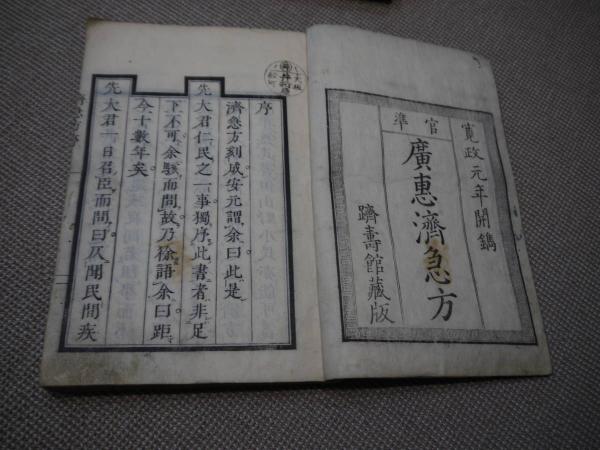 官準
寛政元年開鐫
廣惠濟急方
躋壽館藏版
序
濟急方刻成安元謂余曰此是
先大君仁民之一事獨序此書者非足
下不可余駭而問故乃徐語余曰距
今十數年矣
先大君一日召臣而問曰仄聞民間疾